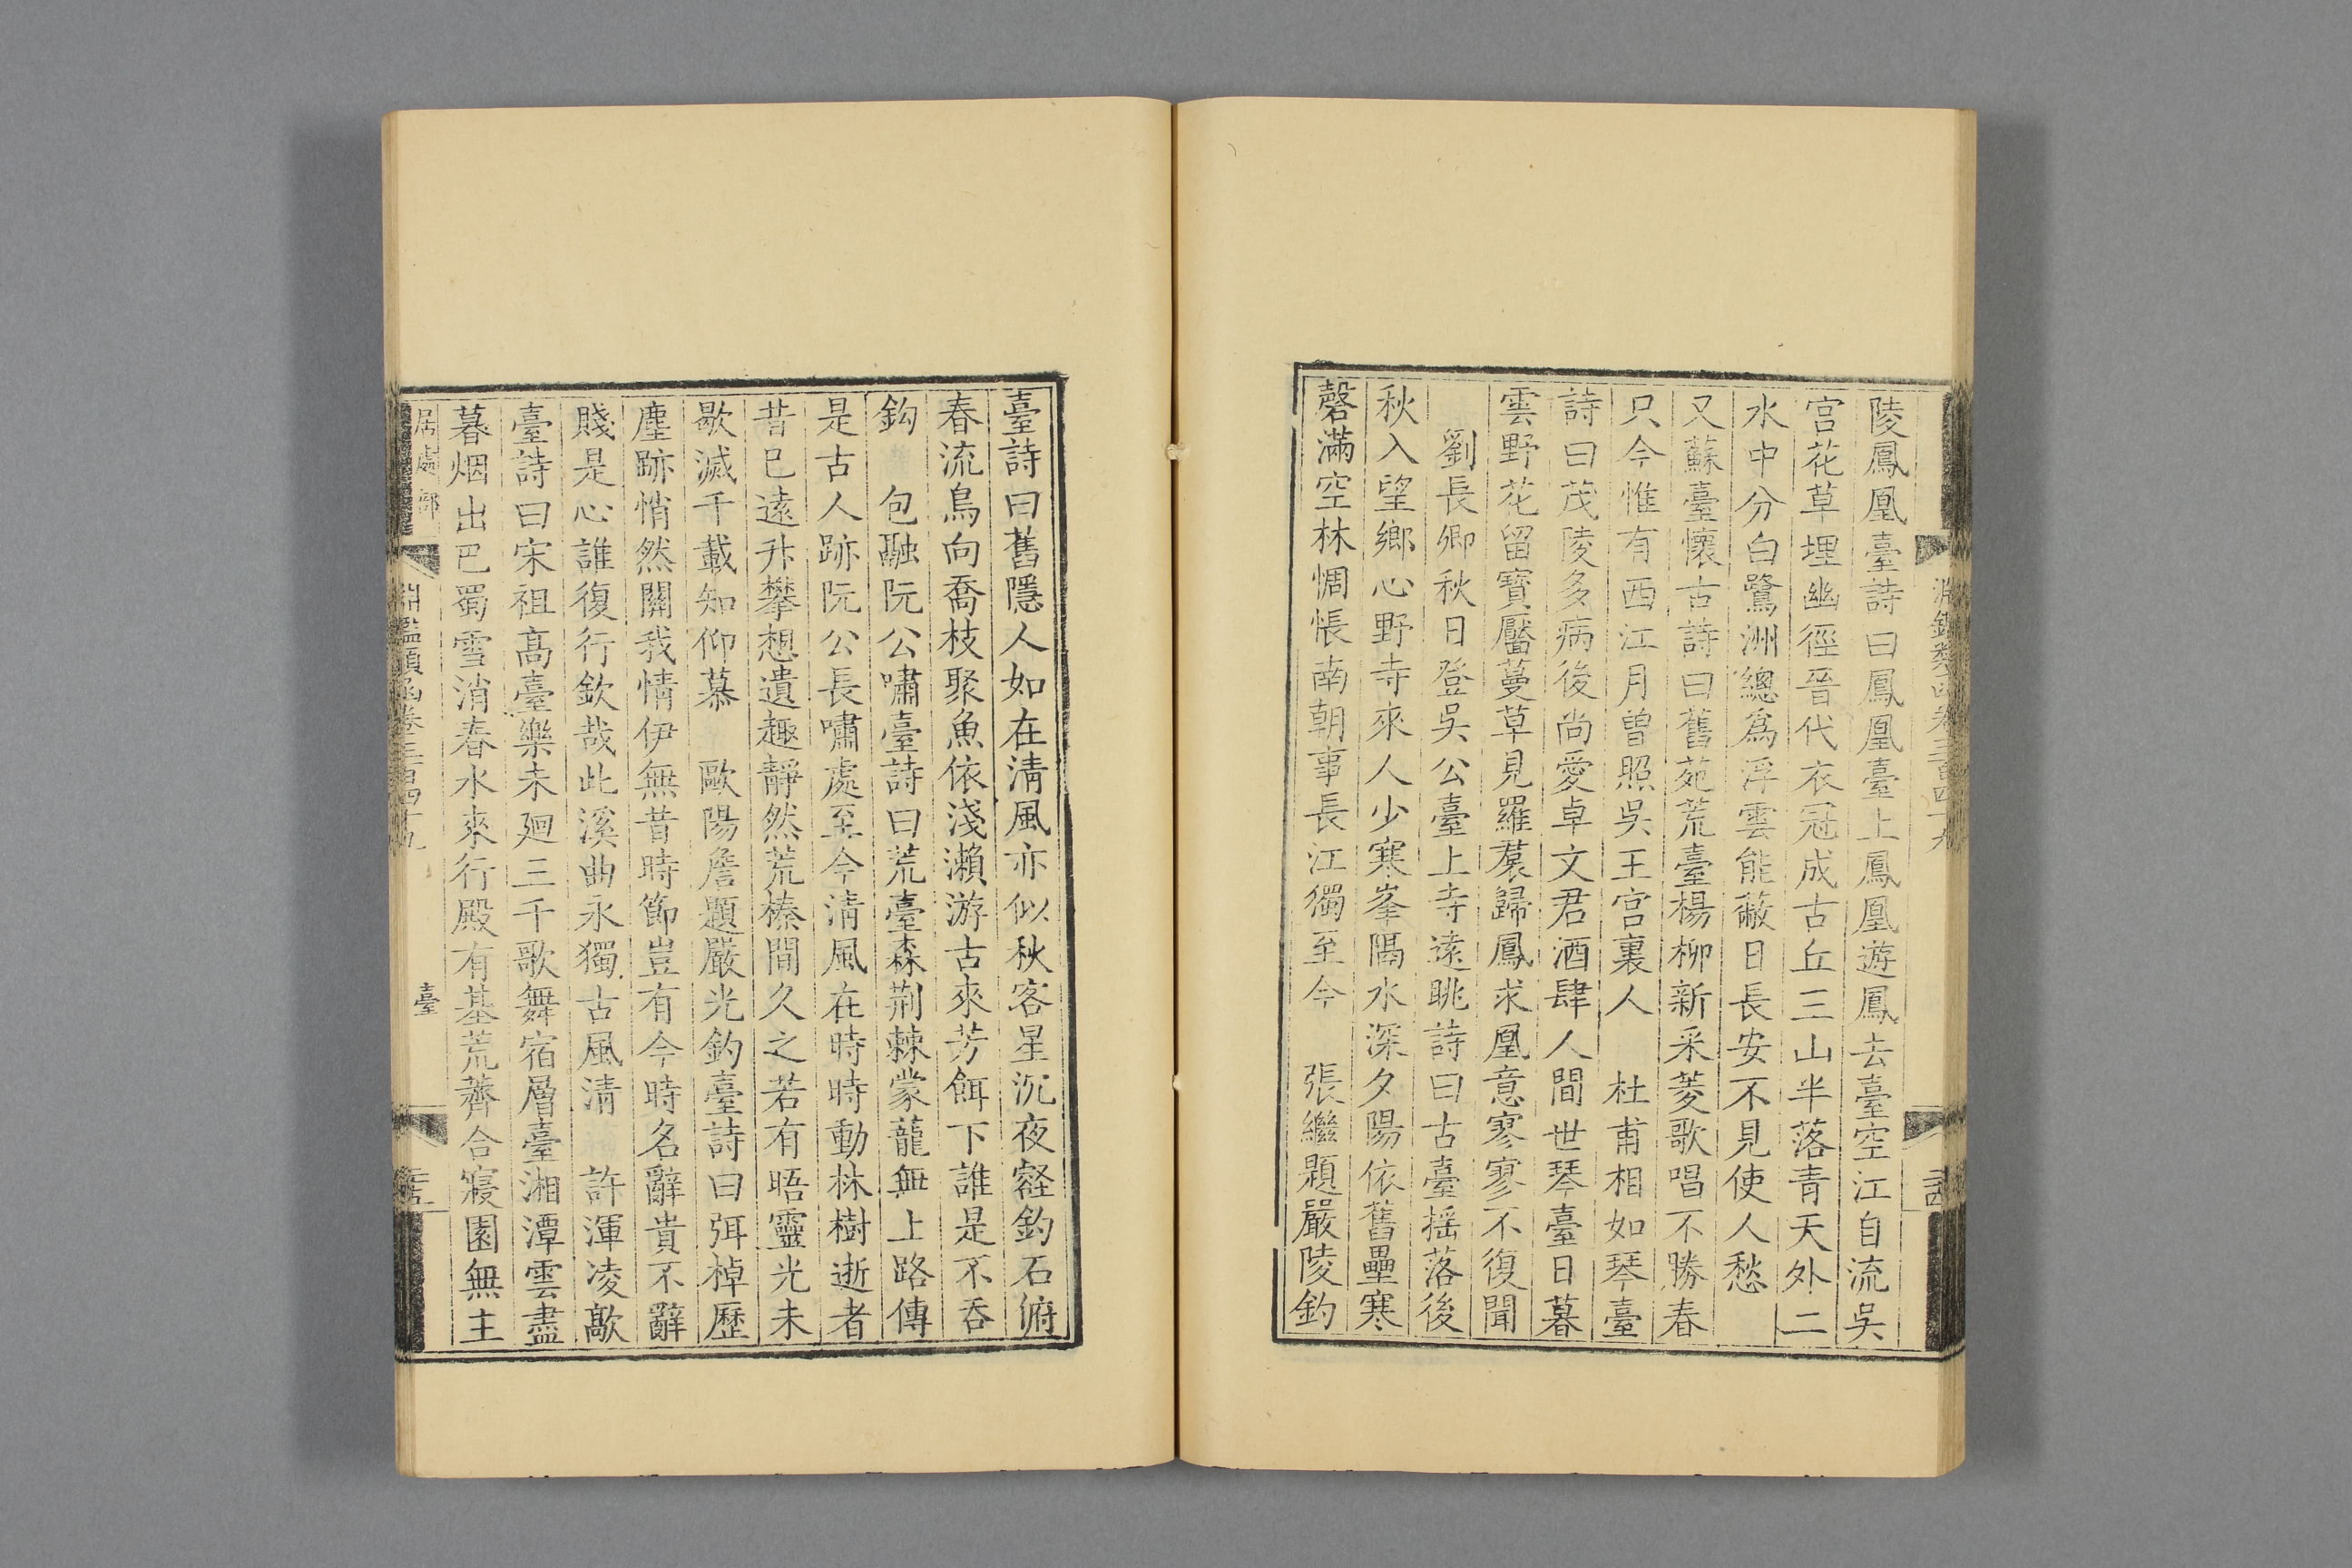 陵鳳凰臺詩曰鳳凰臺上鳳凰遊鳳去臺空江自流吳
宫花草埋幽徑晉代衣冠成古丘三山半落青天外二
水中分白鷺洲總爲浮雲能蔽日長安不見使人愁
又蘇臺懷古詩曰舊苑荒臺楊柳新采菱歌唱不勝春
只今惟有西江月曾照吳王宫裏人　杜甫相如琴臺
詩曰茂陵多病後尚愛卓文君酒肆人間世琴臺日暮
雲野花留寶靨蔓草見羅裠歸鳳求凰意寥寥不復聞
劉長卿秋日登吳公臺上寺遠眺詩曰古臺揺落後
秋入望鄉心野寺來人少寒峯隔水深夕陽依舊壘寒
磬滿空林惆悵南朝事長江獨至今　張繼題嚴陵釣
臺詩曰舊隱人如在清風亦似秋客星沉夜壑釣石俯
春流鳥向喬枝聚魚依淺瀨游古來芳餌下誰是不吞
鈎　包融阮公嘯臺詩曰荒臺森荆棘蒙蘢無上路傳
是古人跡阮公長嘯處至今清風在時時動林樹逝者
昔已遠升攀想遺趣靜然荒榛間久之若有晤靈光未
歇滅千載知仰慕　歐陽詹題嚴光釣臺詩曰弭棹歷
塵跡悄然關我情伊無昔時節豈有今時名辭貴不辭
賤是心誰復行欽哉此溪曲永獨古風清　許渾凌歊
臺詩曰宋祖髙臺樂未廻三千歌舞宿層臺湘潭雲盡
暮烟出巴蜀雪消春水來行殿有基荒薺合寢園無主
居處部
淵鑑類函卷三百四十九
臺